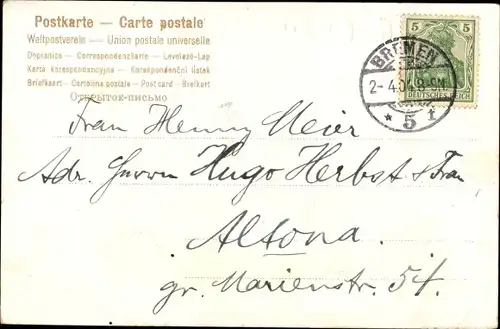 Postkarte – Carte postale
Weltpostverein – Union postale universelle
Dopisnice – Correspondenzkarte – Levelező-Lap
Karta korespondencyjna – Korespondenční lístek
Briefkaart – Cartolina postale – Post card – Brefkort
Открытое письмо
5 5
DEUTSCHES REICH
BREMEN
2-4.04.8-9N.
* 5 t
Frau Henny Meier
Adr. Herrn Hugo Herbst & Frau
Altona.
gr. Marienstr. 54.